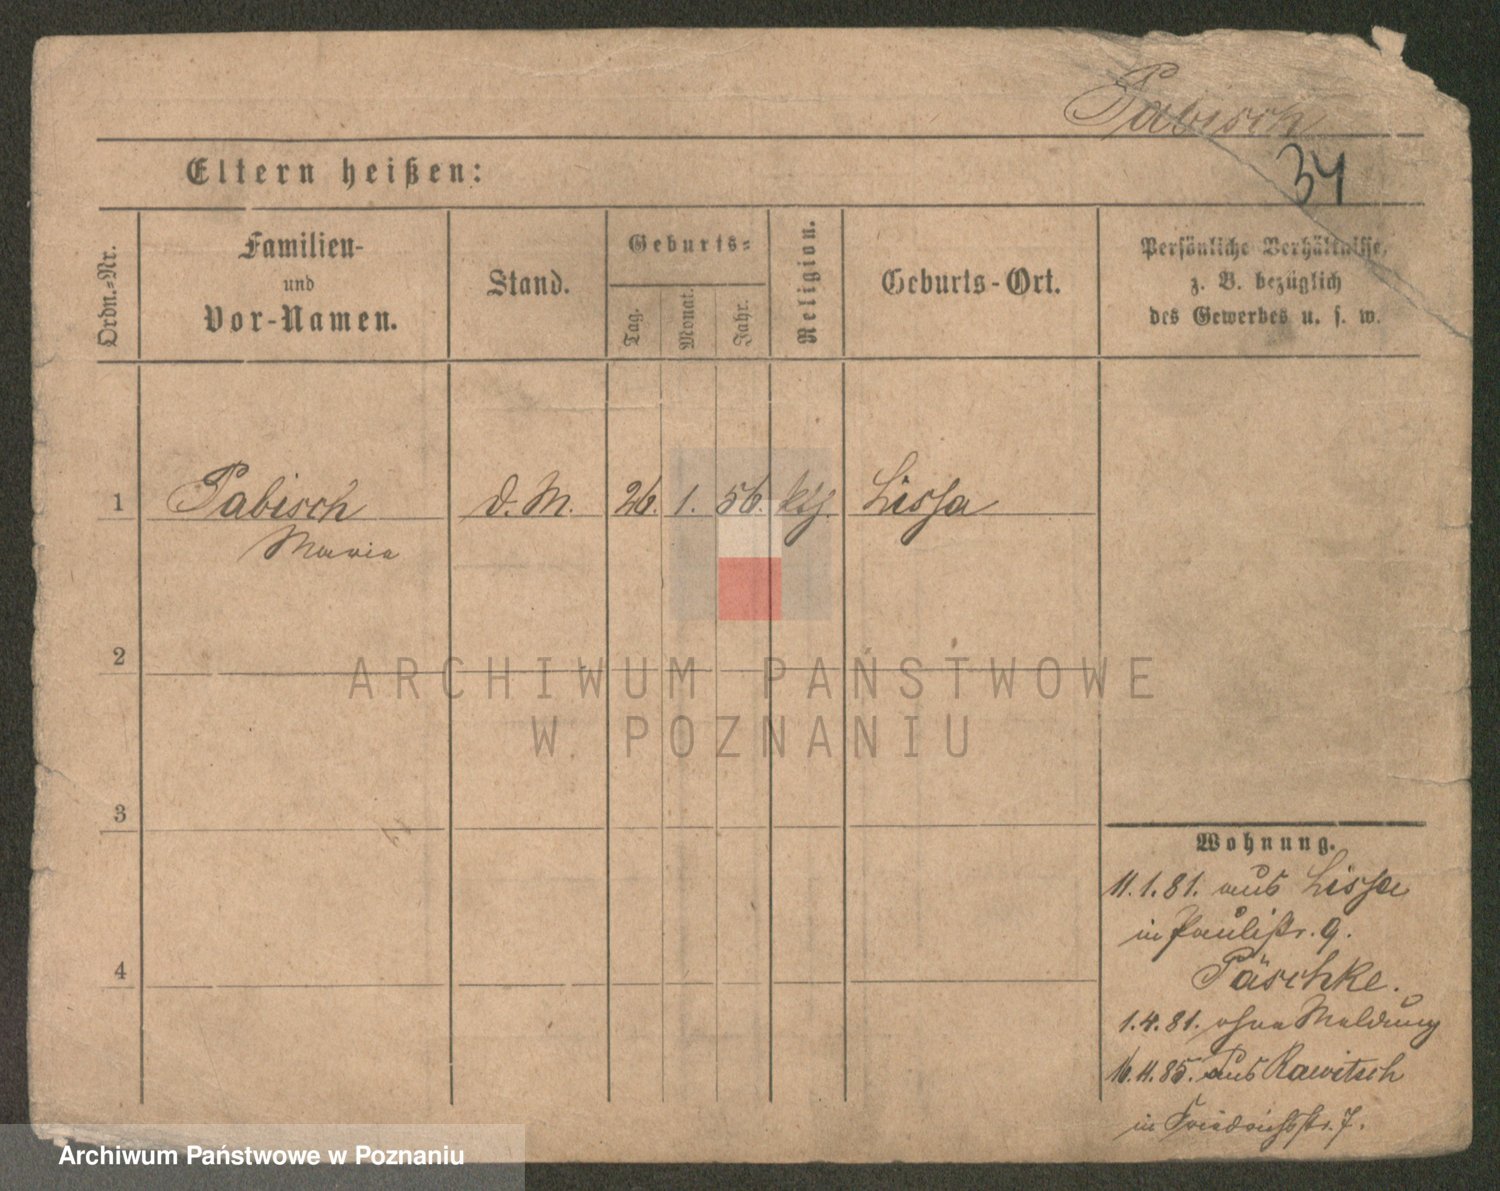 Pabisch
34
Eltern heißen:
Ordn.-Nr.
Familien-
und
Vor-Namen.
Stand.
Geburts-
Tag.
Monat.
Jahr.
Religion.
Geburts-Ort.
Persönliche Verhältnisse,
z. B. bezüglich
des Gewerbes u. s. w.
1 Pabisch d. M. 26. 1. 56. Lissa
Maria
2
ARCHIWUM PAŃSTWOWE
W POZNANIU
3
4
Wohnung.
11.1.81. aus Lissa
in Paulistr. 9.
Päschke.
1.4.81. ohne Meldung
16.4.85. aus Rawitsch
in Friedrichstr. 7.
Archiwum Państwowe w Poznaniu